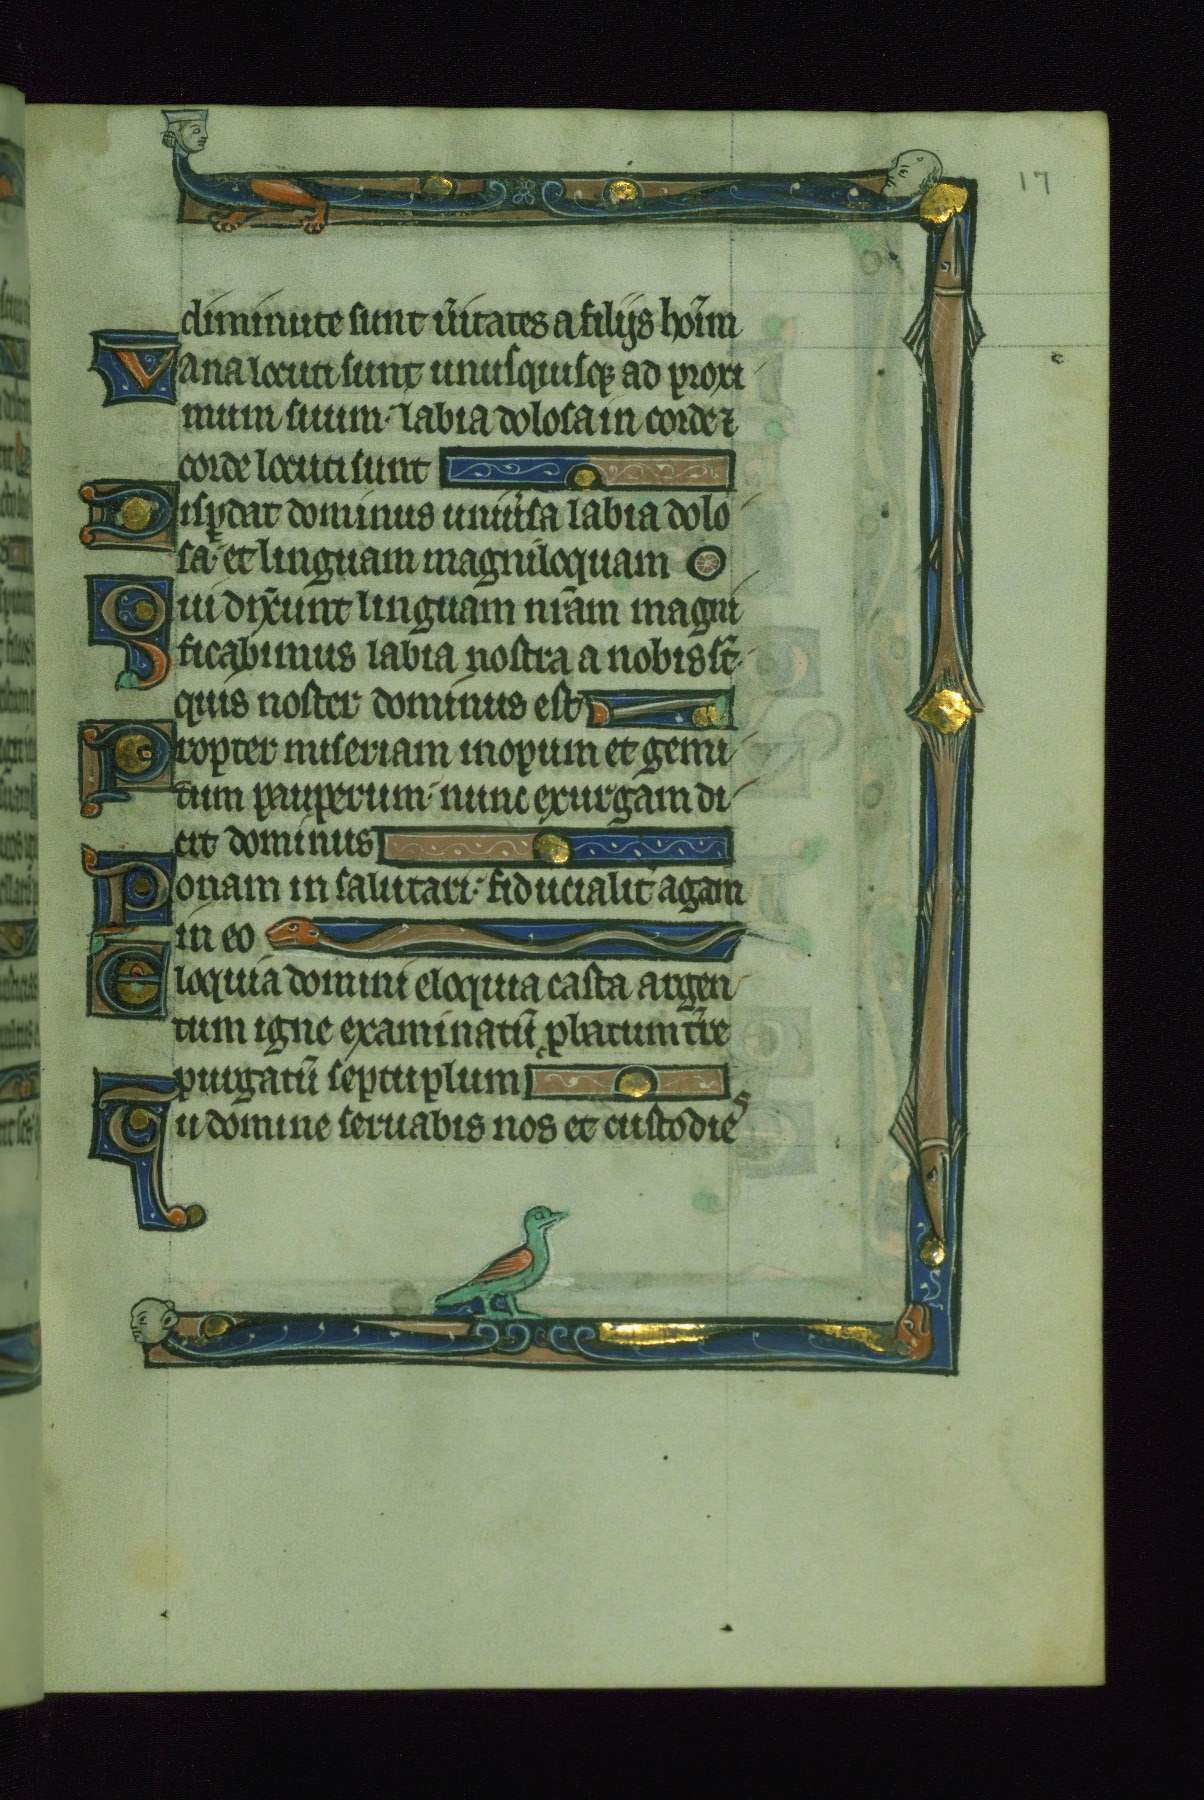 17
diminute sunt ũitates a filijs hoĩm
Vana locuti sunt unusquisqꝫ ad proxi
mum suum· labia dolosa in corde ⁊
corde locuti sunt
Disꝑdat dominus uniũsa labia dolo
sa· et linguam magniloquam
Qui dix̃unt linguam nr̃am magni
ficabimus labia nostra a nobis st̃·
quis noster dominus est
Propter miseriam inopum et gemi
tum pauperum· nunc exurgam di
cit dominus
Ponam in salutari· fiducialit̃ agam
in eo
Eloquia domini eloquia casta argen
tum igne examinatũ ꝓbatum t̃re
purgatũ septuplum
Tu domine seruabis nos et custodies